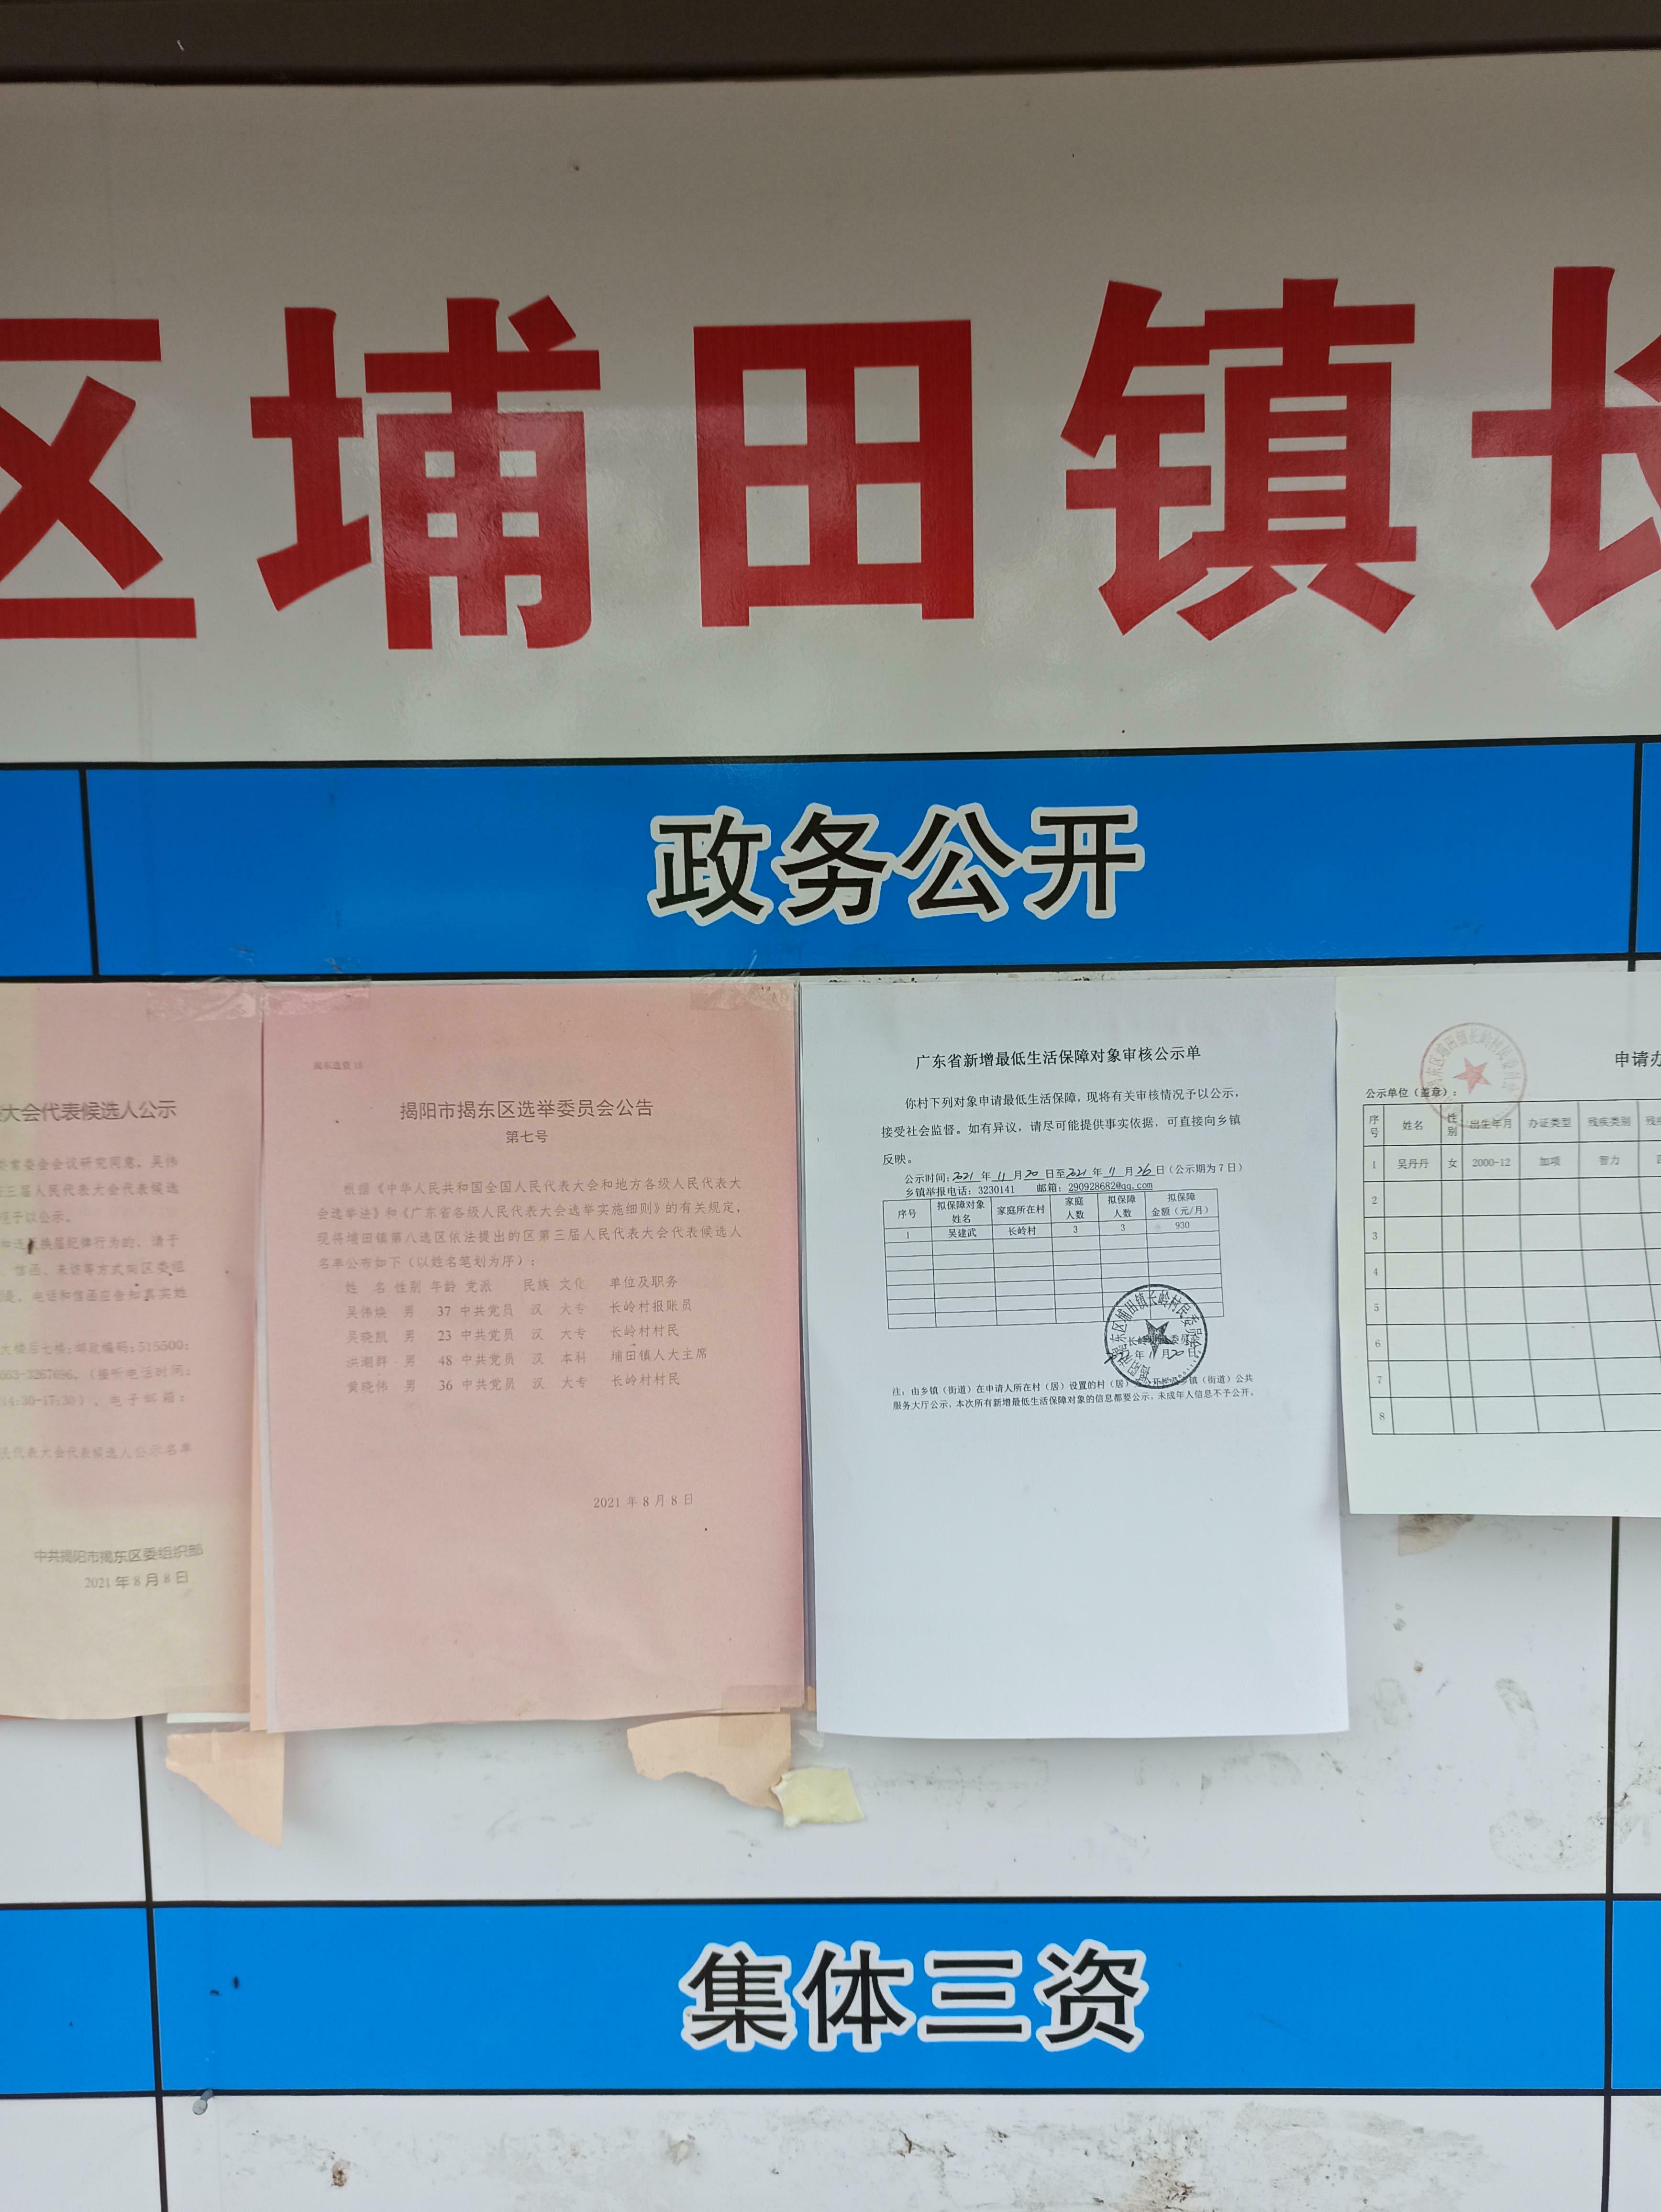 区埔田镇长
政务公开
大会代表候选人公示
委常委会会议研究同意，吴伟
三届人民代表大会代表候选
予以公示。
换届纪律行为的，请于
信函、来访等方式向区委组
电话和信函应告知真实姓
大楼后七楼；邮政编码：515500；
663-3267696，（接听电话时间：
14:30-17:30），电子邮箱：
民代表大会代表候选人公示名单
中共揭阳市揭东区委组织部
2021年8月8日
揭阳市揭东区选举委员会公告
第七号
根据《中华人民共和国全国人民代表大会和地方各级人民代表大
会选举法》和《广东省各级人民代表大会选举实施细则》的有关规定，
现将埔田镇第八选区依法提出的区第三届人民代表大会代表候选人
名单公布如下（以姓名笔划为序）：
姓 名 性别 年龄 党派 民族 文化 单位及职务
吴伟焕 男 37 中共党员 汉 大专 长岭村报账员
吴晓凯 男 23 中共党员 汉 大专 长岭村村民
洪潮群 男 48 中共党员 汉 本科 埔田镇人大主席
黄晓伟 男 36 中共党员 汉 大专 长岭村村民
2021年8月8日
广东省新增最低生活保障对象审核公示单
你村下列对象申请最低生活保障，现将有关审核情况予以公示，
接受社会监督。如有异议，请尽可能提供事实依据，可直接向乡镇
反映。
公示时间：2021年11月20日至2021年11月26日（公示期为7日）
乡镇举报电话：3230141 邮箱：290928682@qq.com
序号 拟保障对象姓名 家庭所在村 家庭人数 拟保障人数 拟保障金额（元/月）
1 吴建武 长岭村 3 3 930
年11月20日
注：由乡镇（街道）在申请人所在村（居）设置的村（居）公开栏及乡镇（街道）公共
服务大厅公示，本次所有新增最低生活保障对象的信息都要公示，未成年人信息不予公开。
申请办
公示单位（盖章）：
序号 姓名 性别 出生年月 办证类型 残疾类别 残疾
1 吴丹丹 女 2000-12 加项 智力
2
3
4
5
6
7
8
集体三资